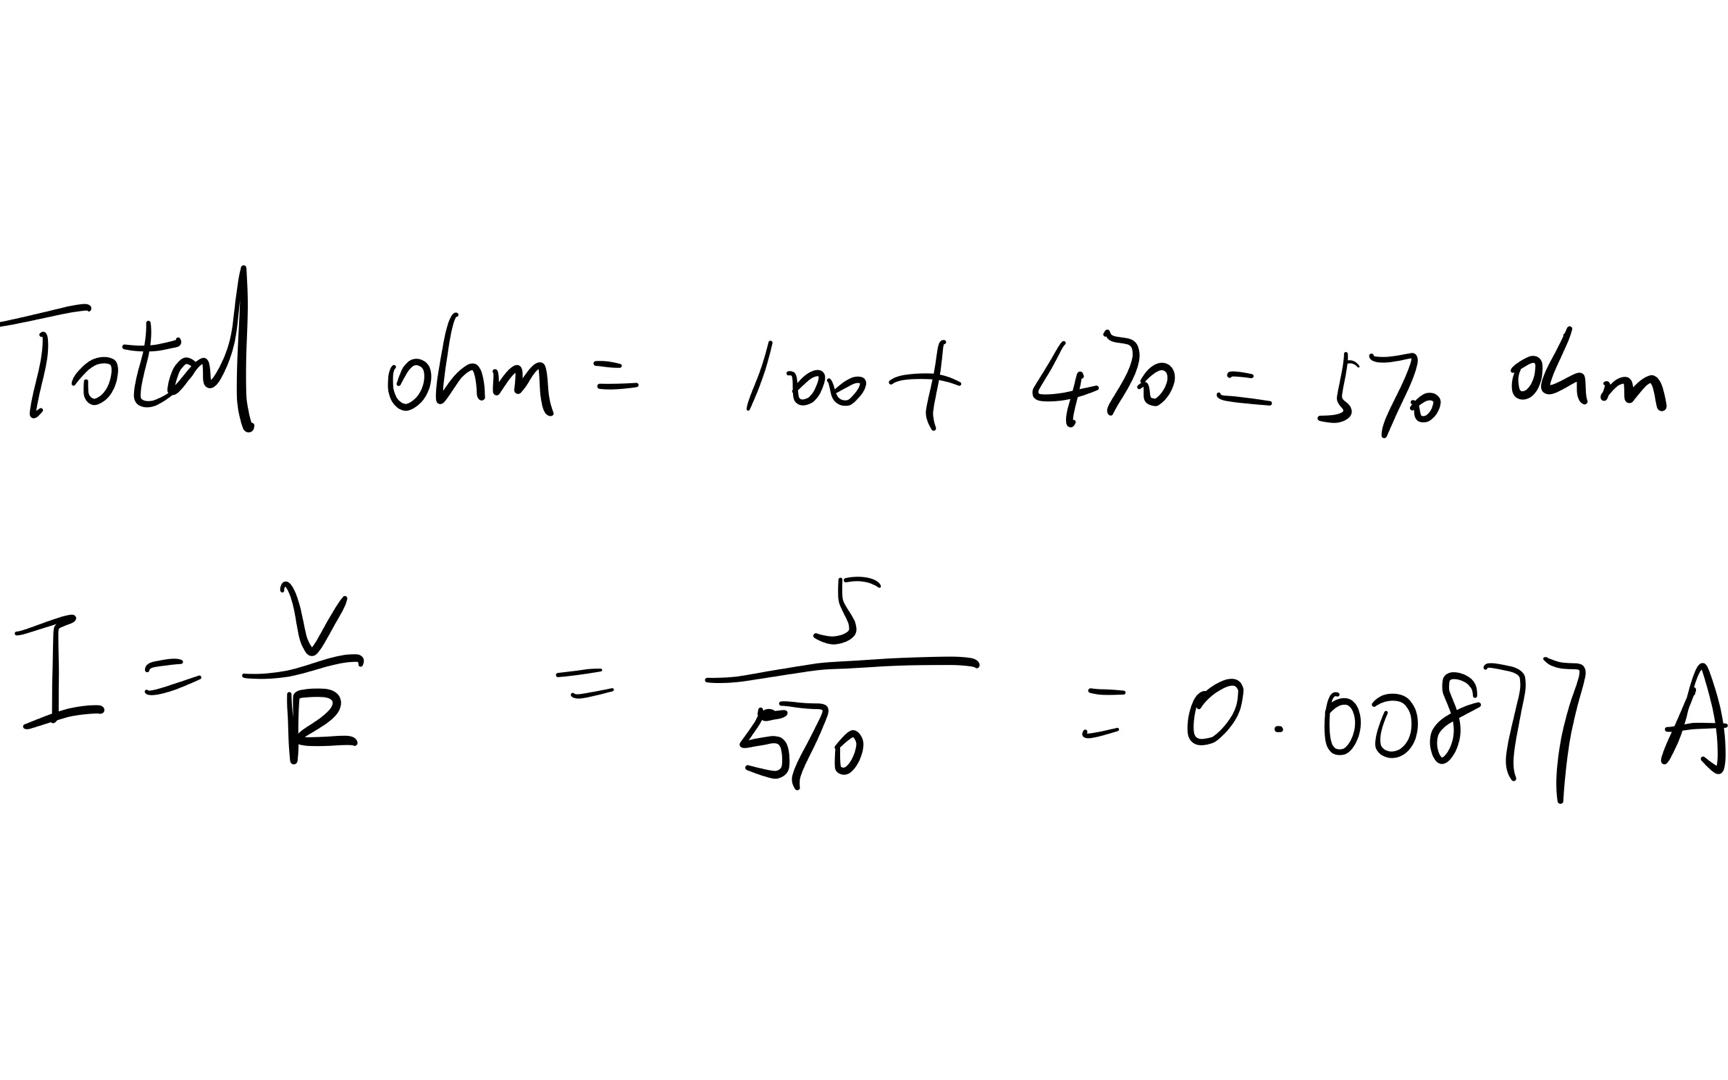 Total ohm = 100 + 470 = 570 ohm
I = V/R = 5/570 = 0.00877 A